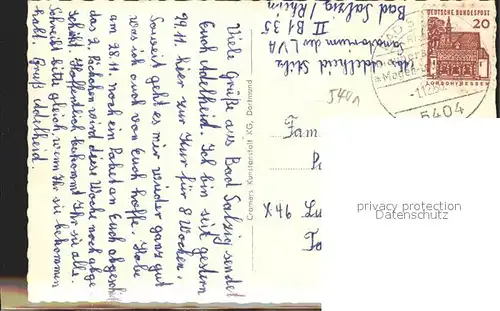 Viele Grüße aus Bad Salzig sendet
Euch Adelheid. Ich bin seit gestern
29.11. hier zur Kur für 8 Wochen.
Soweit geht es mir wieder ganz gut
was ich auch von Euch hoffe. Habe
am 28.11. noch ein Paket an Euch abgeschickt
das 2. Päckchen wird diese Woche noch abge
schickt. Hoffentlich bekommt Ihr sie alle.
Schreibt bitte gleich wenn Ihr sie bekommen
habt. Gruß Adelheid.
Cramers Kunstanstalt KG, Dortmund
Adelheid
Sanatorium der LVA
II B1 35
Bad Salzig / Rhein
5401
Fam
DEUTSCHE BUNDESPOST
20
LORSCH/HESSEN
5404
privacy protection
Datenschutz